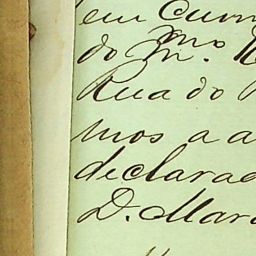 em Cum
do Mmo.
Rua do
mos a a
declarad
D. Mar